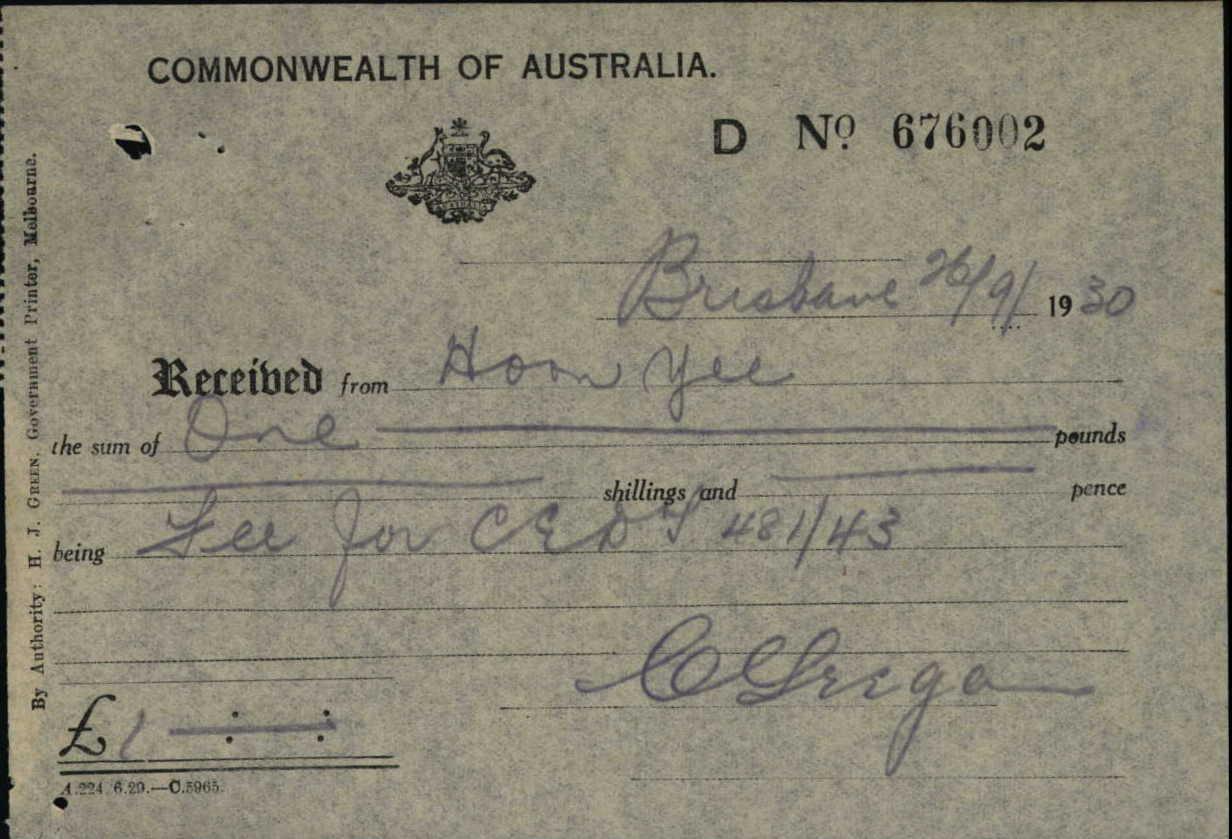 COMMONWEALTH OF AUSTRALIA.
D Nº 676002
AUSTRALIA
Brisbane 26/9/ 1930
Received from Hoon Yee
the sum of One pounds
shillings and pence
being Fee for CEDT 481/43
£1 — : — :
A.224. 6.29.—C.5965.
By Authority: H. J. GREEN, Government Printer, Melbourne.